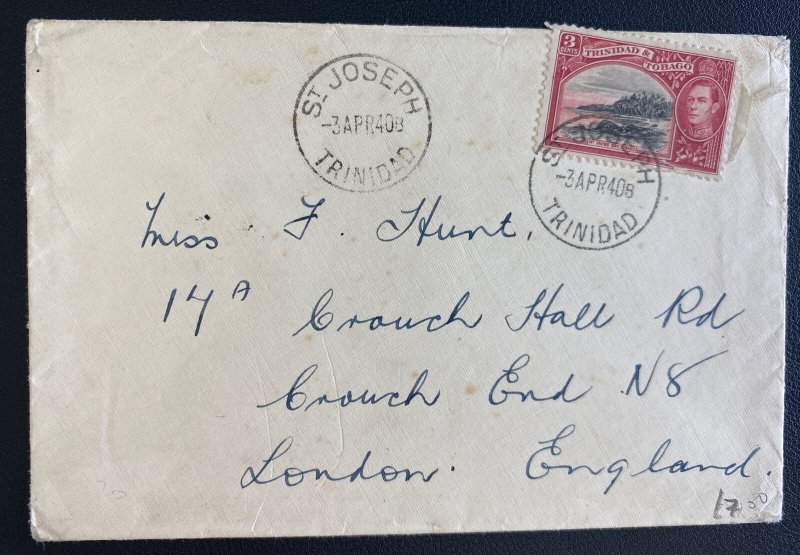 ST JOSEPH
-3APR40B
TRINIDAD
3
CENTS
TRINIDAD &
TOBAGO
ST JOSEPH
-3APR40B
TRINIDAD
Miss F. Hunt,
17A Crouch Hall Rd
Crouch End N8
London. England.